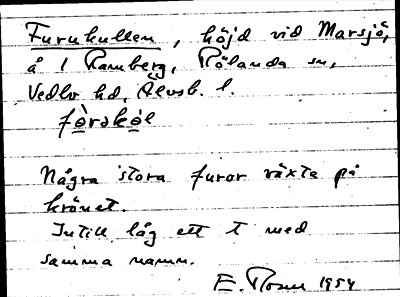 Furukullen, höjd vid Marsjö,
å 1 Ramberg, Rölanda sn,
Vedbo hd, Älvsb. l.
fòrəkəl
Några stora furor växte på
krönet.
Intill låg ett t med
samma namn.
E. Rosen 1954